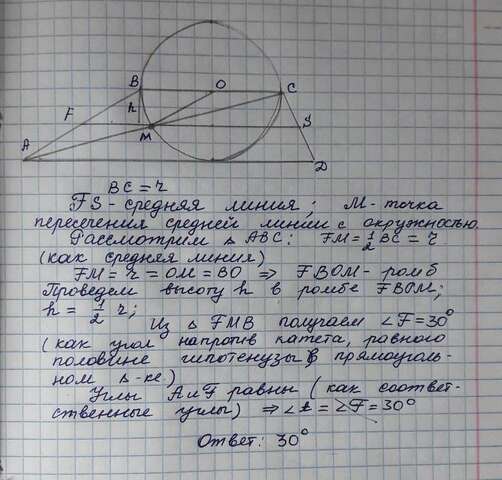 A
F
B
h
M
O
C
S
D
BC = 2
FS - средняя линия; М - точка
пересечения средней линии с окружностью
Рассмотрим Δ ABC: FM = 1/2 BC = r
(как средняя линия)
FM = r = OM = BO ⇒ FBOM - ромб
Проведем высоту h в ромбе FBOM;
h = 1/2 r; Из Δ FMB получаем ∠F = 30°
(как угол напротив катета, равного
половине гипотенузы в прямоуголь-
ном Δ-ке)
Углы A и F равны (как соответ-
ственные углы) ⇒ ∠A = ∠F = 30°
Ответ: 30°